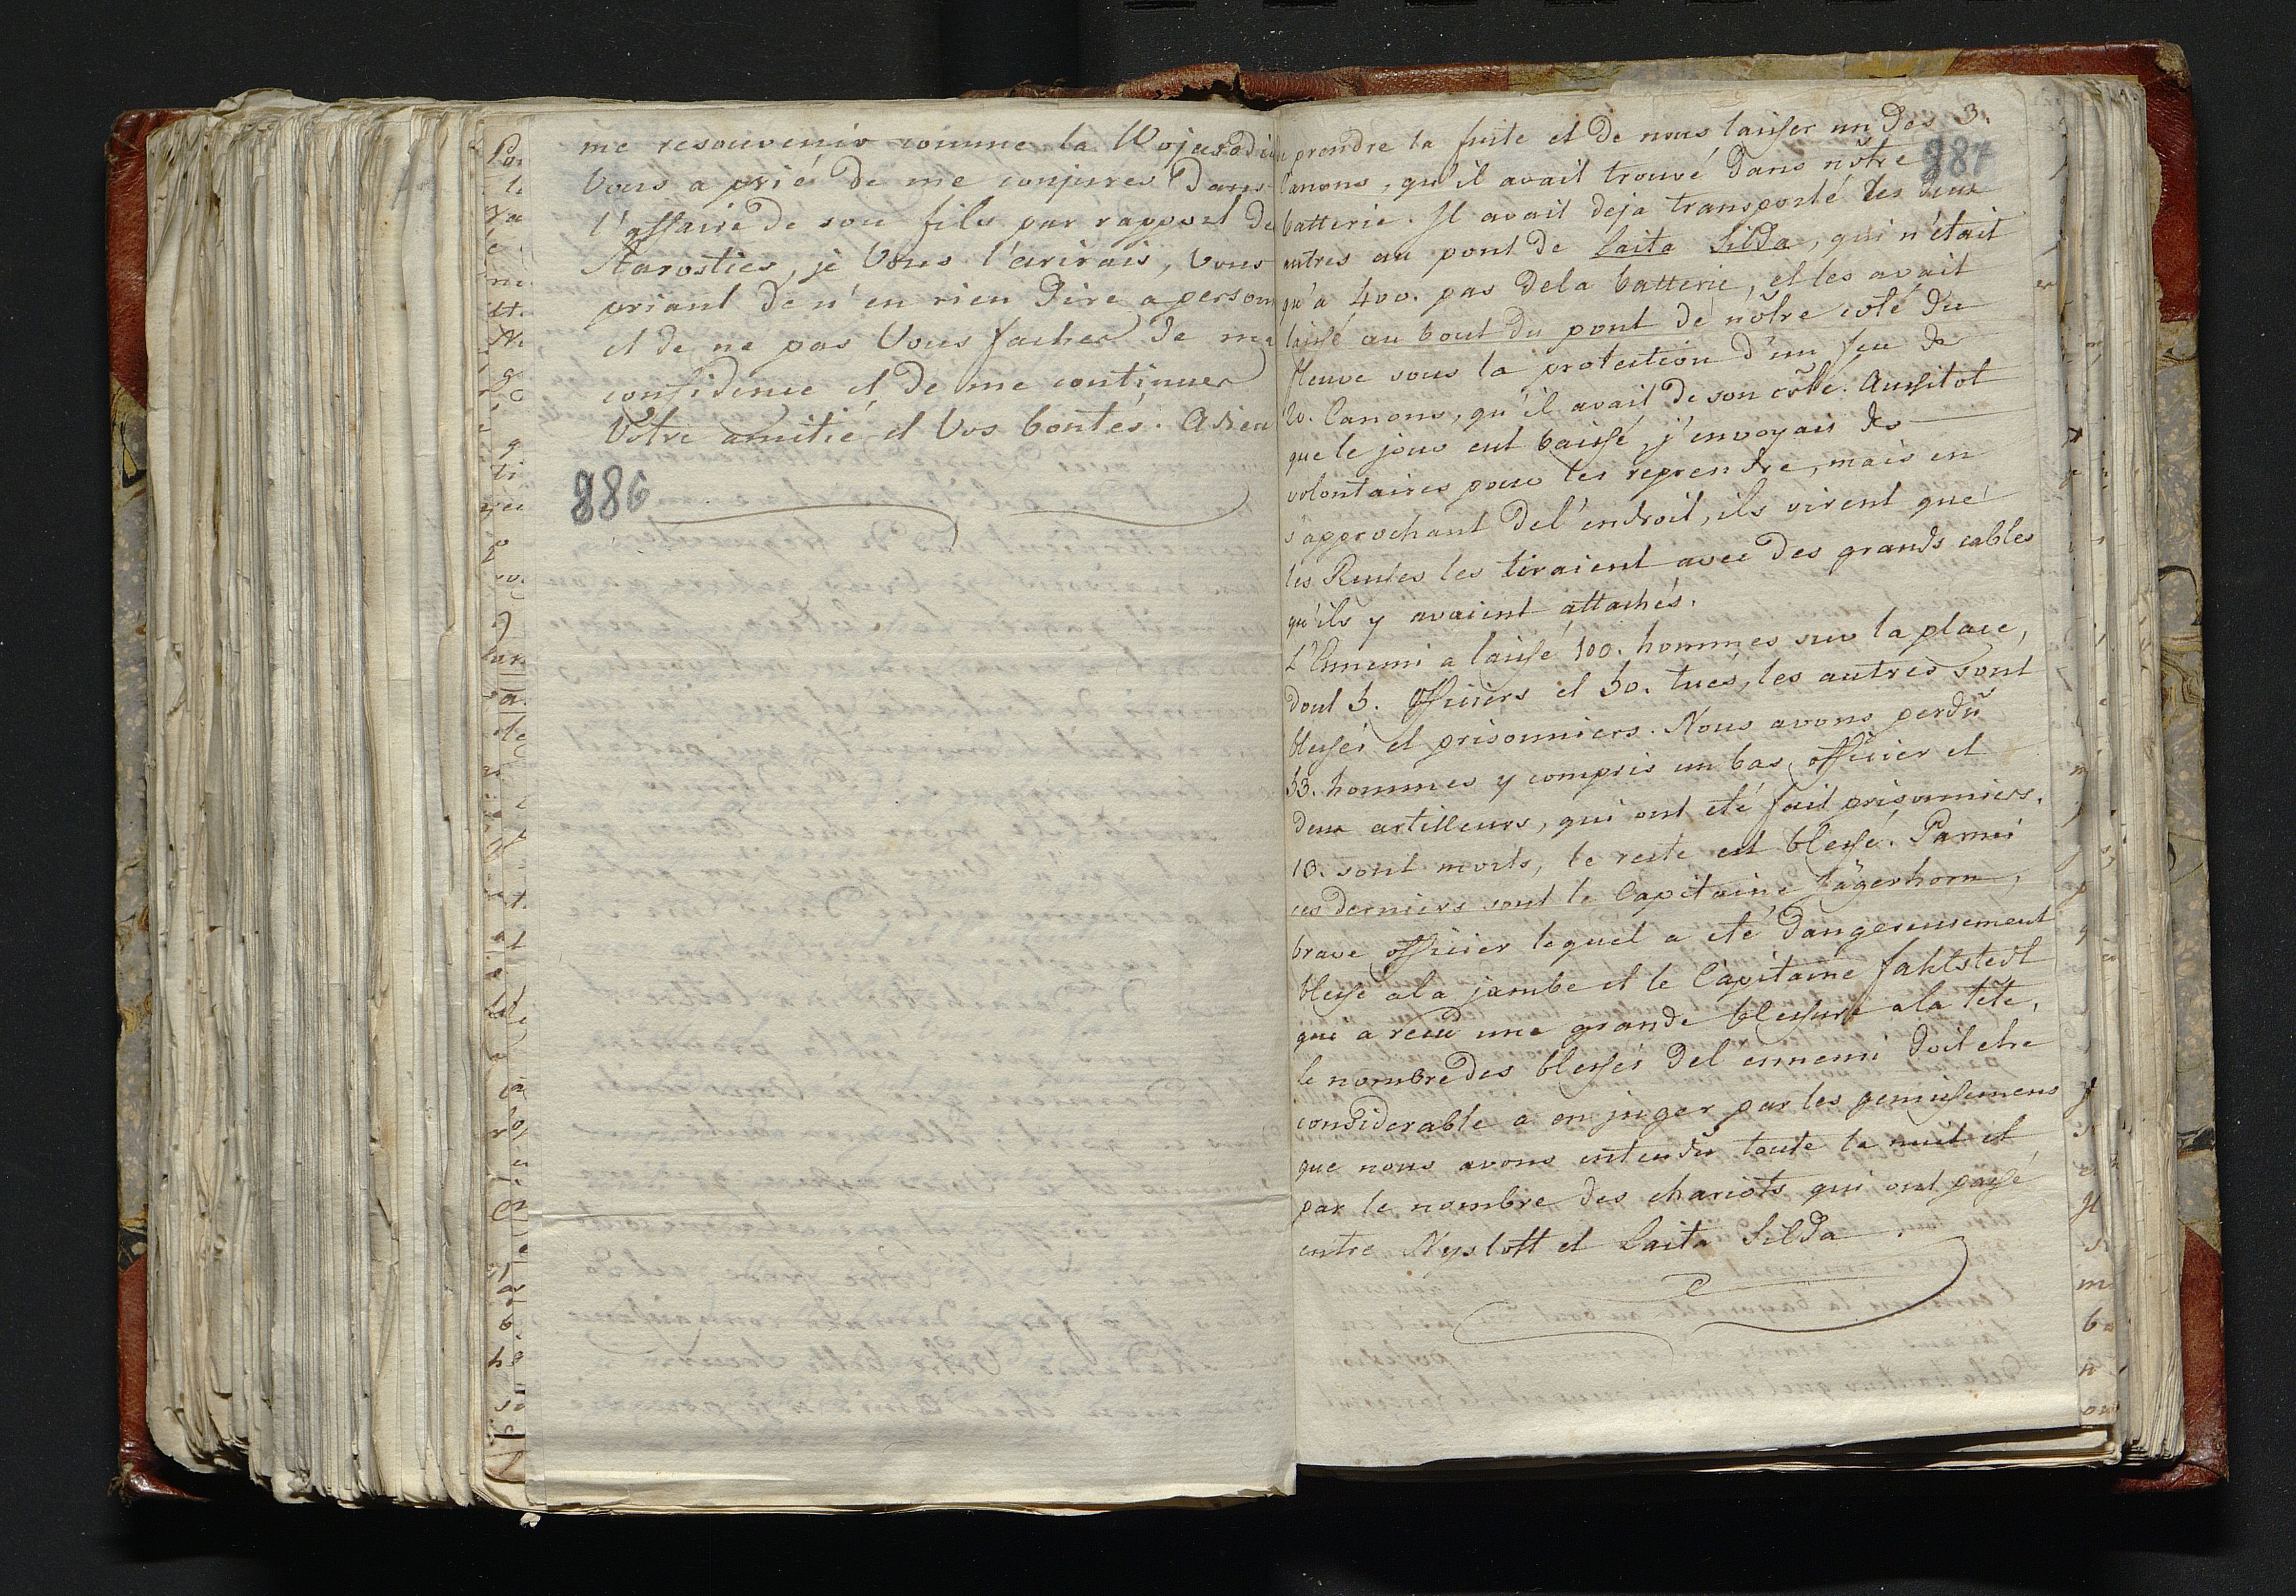 me resouvenir comme la Wojewodi
Vous a prié de me conjurer dans
l'affaire de son fils par rapport de
Starosties, je Vous l'écrirais, Vous
priant de n'en rien dire a person
et de ne pas Vous facher de ma
confidence et de me continuer
Votre amitié et Vos bontés. Adieu
886
prendre la fuite et de nous laisser un des 3.
887
Canons, qu'il avait trouvé dans nôtre
batterie. Il avait deja transporté les deux
autres au pont de Laita Silda, qui n'était
qu'a 400. pas dela batterie, et les avait
laissé au bout du pont de nôtre coté du
fleuve sous la protection d'un feu de
20. Canons, qu'il avait de son côté. Aussitot
que le jour eut baissé, j'envoyais des
volontaires pour les reprendre, mais en
s'approchant del'endroit, ils virent que
les Russes les tiraient avec des grands cables
qu'ils y avaient attachés.
L'Ennemi a laissé 100. hommes sur la place,
dont 3. Officiers et 50. tués, les autres sont
blessés et prisonniers. Nous avons perdû
33. hommes y compris un bas officier et
deux artilleurs, qui ont eté fait prisonniers.
13. sont morts, le reste est blessé. Parmi
ces derniers sont le Capitaine Jägerhorn,
brave officier lequel a eté dangereusement
blessé ala jambe et le Capitaine Fahlstedt
qui a recu une grande blessure ala tête.
le nombre des blessés del ennemi doit etre
considerable a en juger par les gemissemens
que nous avons entendu toute la nuit et
par le nombre des chariots qui ont passé
entre Nyslott et Laita Silda.